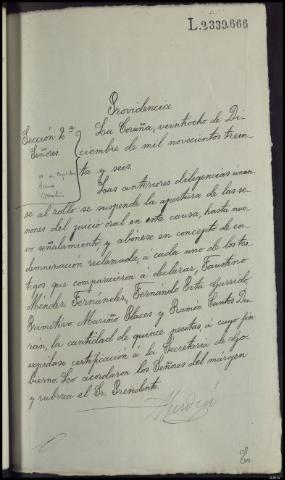 L.2339.666
Providencia
Sección 2ª
Señores
La Coruña, veintiocho de Di-
ciembre de mil novecientos trein-
ta y seis.
Las anteriores diligencias únan-
se al rollo se suspende la apertura de las se-
siones del juicio oral en esta causa, hasta nue-
vo señalamiento y abónese en concepto de in-
demnización reclamada, a cada uno de los tes-
tigos que comparecieron a declarar, Faustino
Mendez Fernández, Fernando Garrido,
Primitivo Mariño Placer y Ramón Santos Du-
ran, la cantidad de quince pesetas, a cuyo fin
expídase certificación a la Secretaría de Go-
bierno. Lo acordaron los Señores del margen
y rubrica el Sr. Presidente.